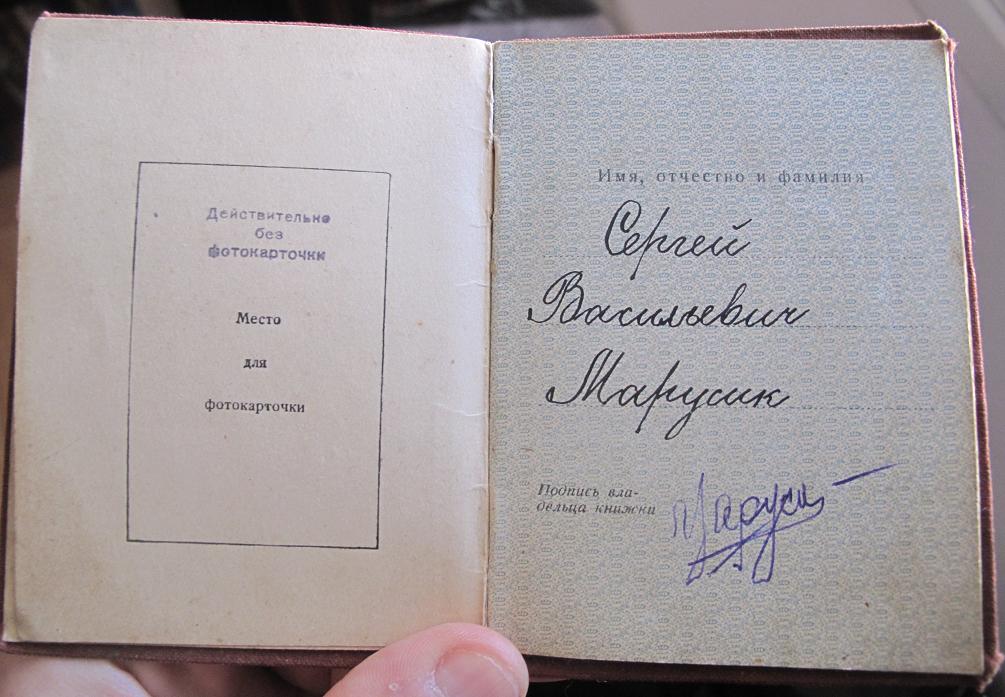 Действительно
без
фотокарточки
Место
для
фотокарточки
Имя, отчество и фамилия
Сергей
Васильевич
Марусик
Подпись вла-
дельца книжки
Маруси